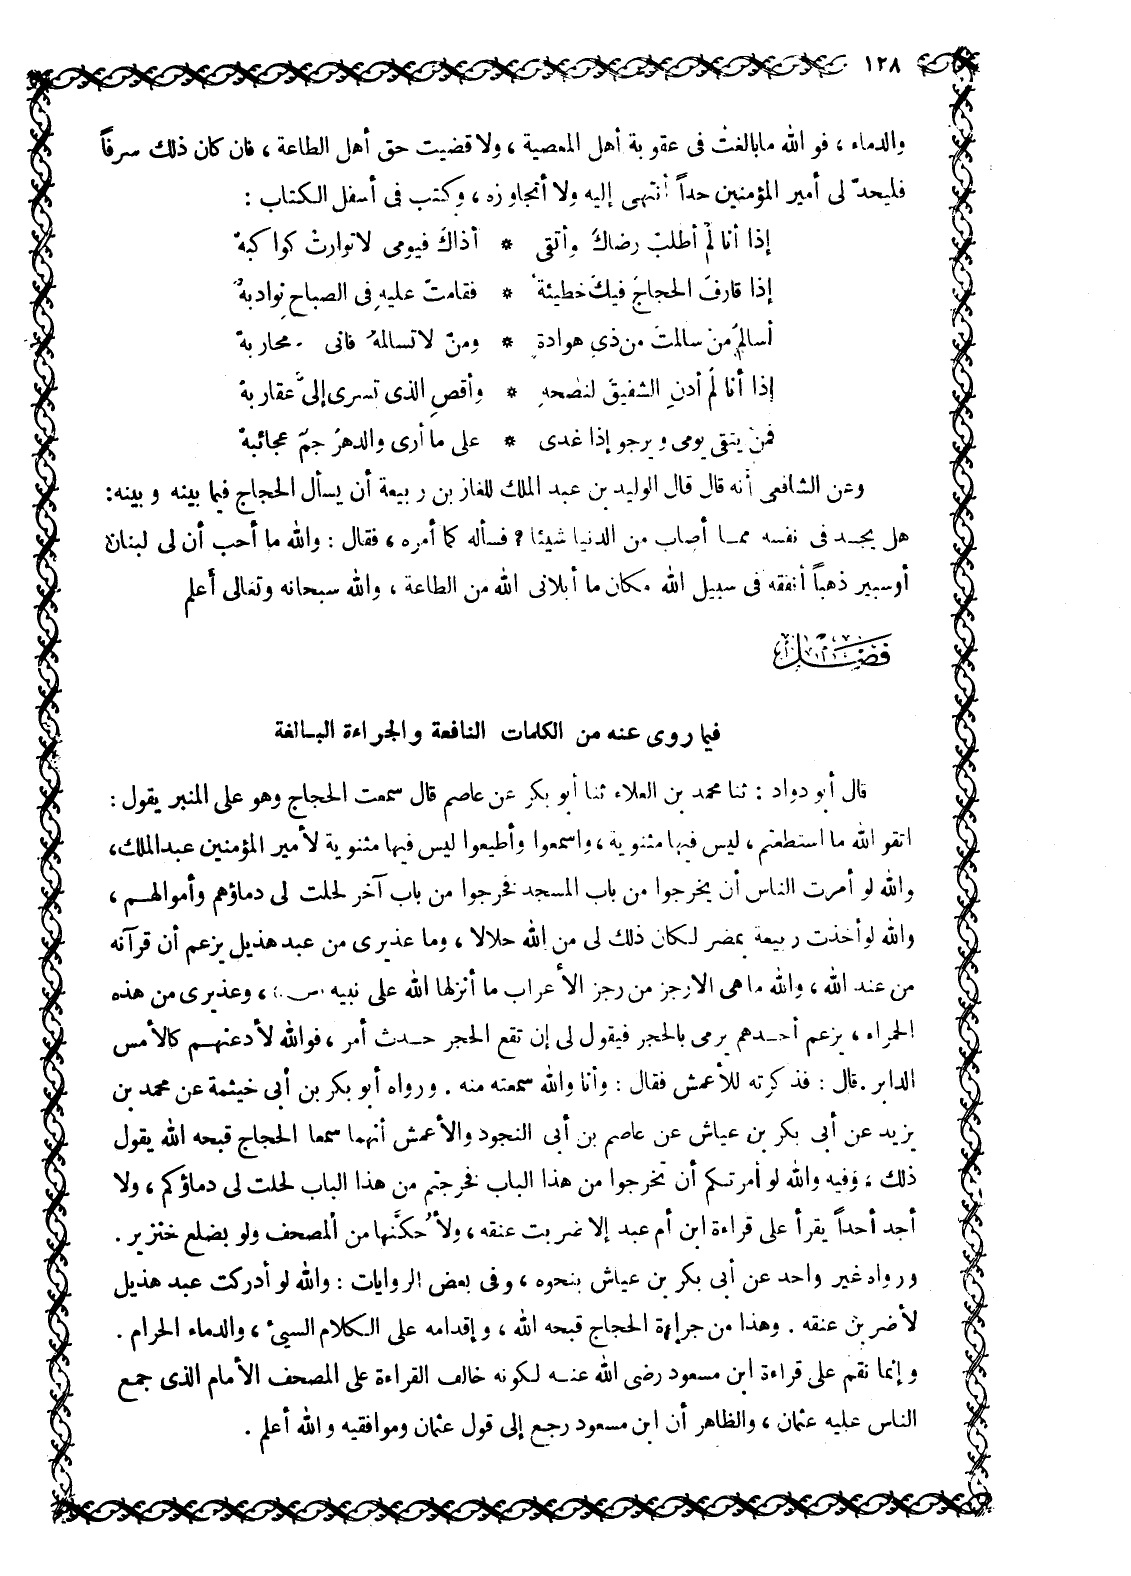 ١٢٨
والدماء ، فو الله مابالغت فى عقوبة أهل المعصية ، ولا قضيت حق أهل الطاعة ، فان كان ذلك سرفاً
فليحدّ لى أمير المؤمنين حداً أنتهى إليه ولا أتجاوزه ، وكتب فى أسفل الكتاب :
إذا أنا لمْ أطلبْ رضاكَ وأتقى * أذاكَ فيومى لاتوارتْ كواكبهْ
إذا قارفَ الحجاجَ فيكَ خطيئة * فقامتْ عليهِ فى الصباحِ نوادبهُ
أسالمُ من سالمتَ من ذي هوادةٍ * ومنْ لاتسالمهُ فانى محاربهْ
إذا أنا لَم أدنِ الشفيقَ لنصحهِ * وأقصِ الذى تسرى إلىَّ عقاربهْ
فمنْ يتقى يومى ويرجو إذا غدى * على ما أرى والدهرُ جمٌ عجائبهْ
وعن الشافعى أنه قال قال الوليد بن عبد الملك للغاز بن ربيعة أن يسأل الحجاج فيما بينه وبينه:
هل يجد فى نفسه مما أصاب من الدنيا شيئا ? فسأله كما أمره ، فقال : والله ما أحب أن لى لبنان
أوسبير ذهباً أنفقه فى سبيل الله مكان ما أبلانى الله من الطاعة ، والله سبحانه وتعالى أعلم
فصل
فيما روى عنه من الكلمات النافعة والجراءة البالغة
قال أبو دواد : ثنا محمد بن العلاء ثنا أبو بكر عن عاصم قال سمعت الحجاج وهو على المنبر يقول :
اتقو الله ما استطعتم ، ليس فيها مثنوية ، واسمعوا وأطيعوا ليس فيها مثنوية لأمير المؤمنين عبدالملك،
والله لو أمرت الناس أن يخرجوا من باب المسجد فخرجوا من باب آخر لحلت لى دماؤهم وأموالهم ،
والله لو أخذت ربيعة بمضر لكان ذلك لى من الله حلالا ، وما عذيرى من عبد هذيل يزعم أن قرآنه
من عند الله ، والله ما هى الارجز من رجز الأعراب ما أنزلها الله على نبيه (س) ، وعذيرى من هذه
الحمراء ، يزعم أحدهم يرمى بالحجر فيقول لى إن تقع الحجر حدث أمر ، فوالله لأدعنهم كالأمس
الدابر . قال : فذكرته للأعمش فقال : وأنا والله سمعته منه . ورواه أبو بكر بن أبى خيثمة عن محمد بن
يزيد عن أبى بكر بن عياش عن عاصم بن أبى النجود والأعمش أنهما سمعا الحجاج قبحه الله يقول
ذلك ، وفيه والله لو أمرتكم أن تخرجوا من هذا الباب فخرجتم من هذا الباب لحلت لى دماؤكم ، ولا
أجد أحداً يقرأ على قراءة ابن أم عبد إلا ضربت عنقه ، ولأحكنَّها من المصحف ولو بضلع خنزير .
ورواه غير واحد عن أبى بكر بن عياش بنحوه ، وفى بعض الروايات : والله لو أدركت عبد هذيل
لأضربن عنقه . وهذا من جراءة الحجاج قبحه الله ، وإقدامه على الكلام السيئ ، والدماء الحرام .
وإنما نقم على قراءة ابن مسعود رضى الله عنه لكونه خالف القراءة على المصحف الأمام الذى جمع
الناس عليه عثمان ، والظاهر أن ابن مسعود رجع إلى قول عثمان وموافقيه والله أعلم .